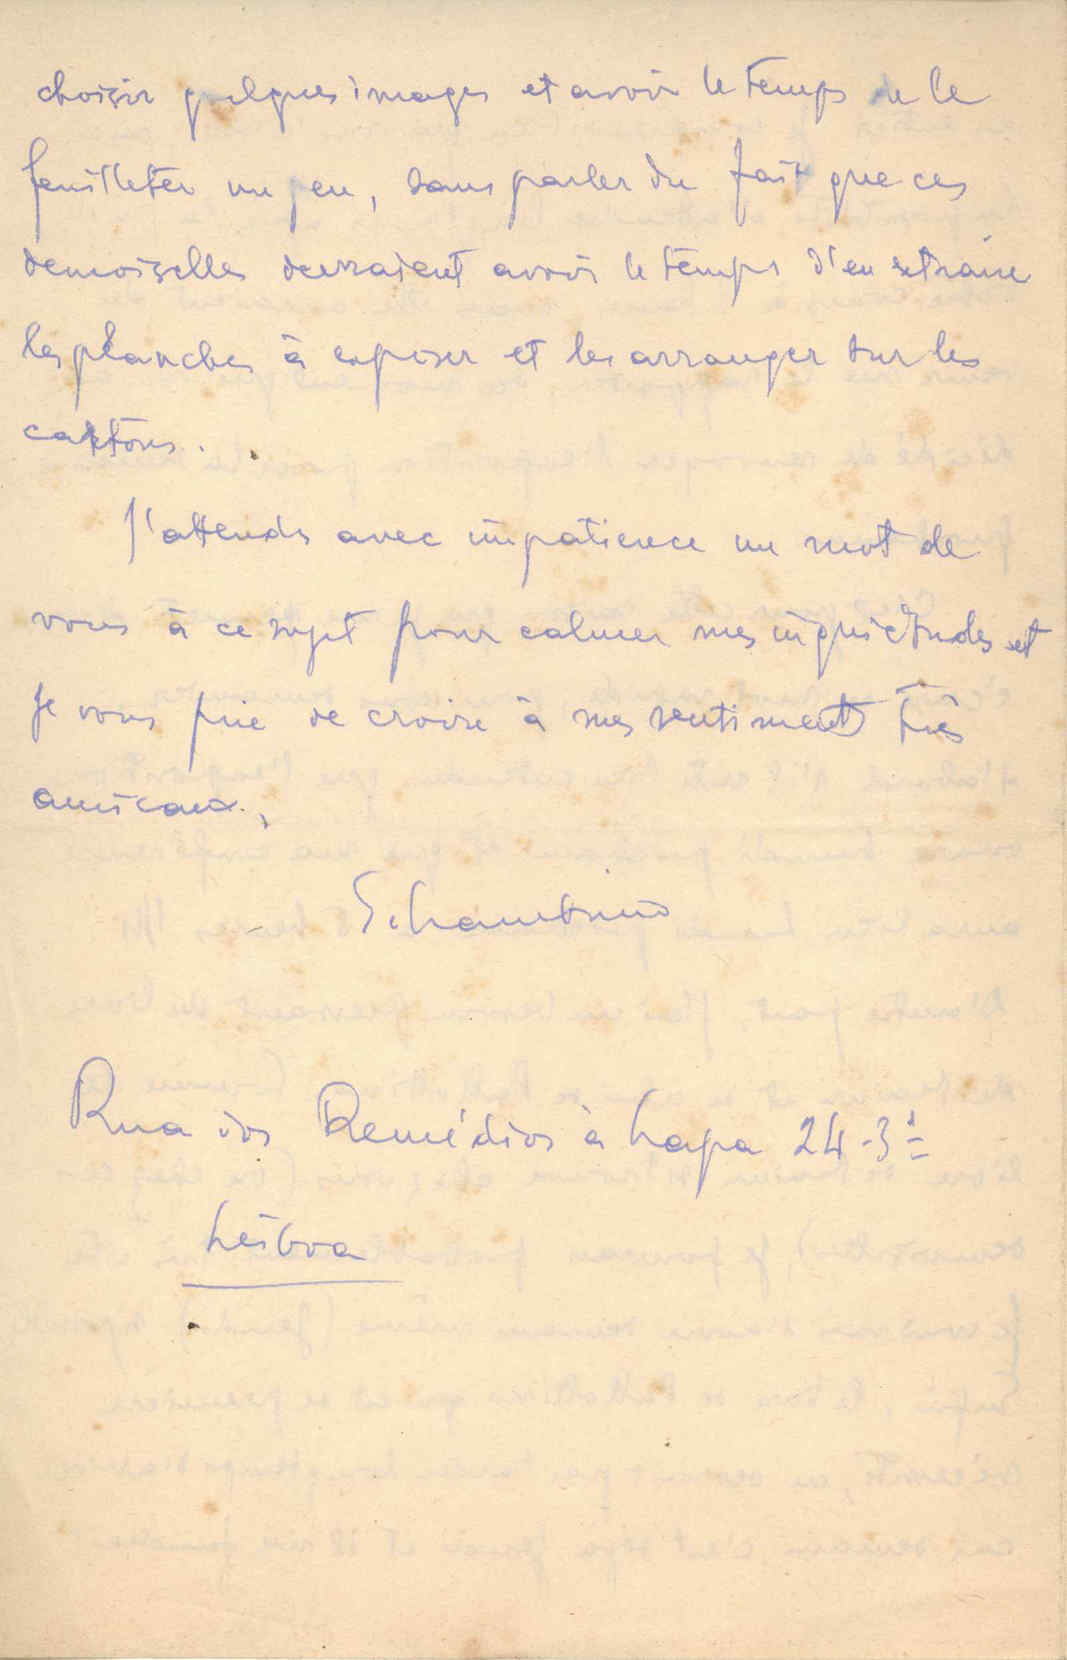 choisir quelques images et avoir le temps de le
feuilleter un peu, sans parler du fait que ces
demoiselles devraient avoir le temps d'en extraire
les planches à exposer et les arranger sur les
cartons.
J'attends avec impatience un mot de
vous à ce sujet pour calmer mes inquiétudes et
je vous prie de croire à mes sentiments très
amicaux.
Rua dos Remédios à Lapa 24-3º
Lisboa